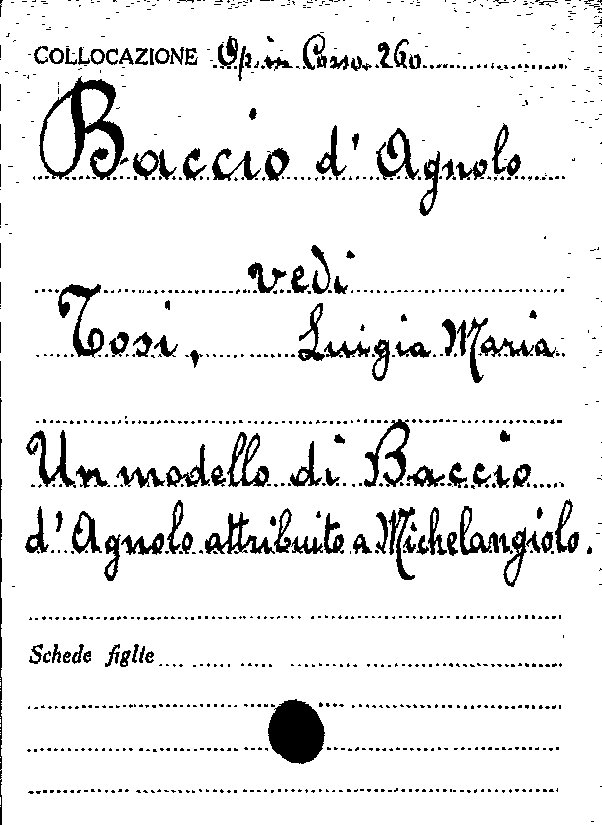 COLLOCAZIONE Op. in Corso 260
Baccio d'Agnolo
vedi
Tosi, Luigia Maria
Un modello di Baccio
d'Agnolo attribuito a Michelangiolo.
Schede figlie